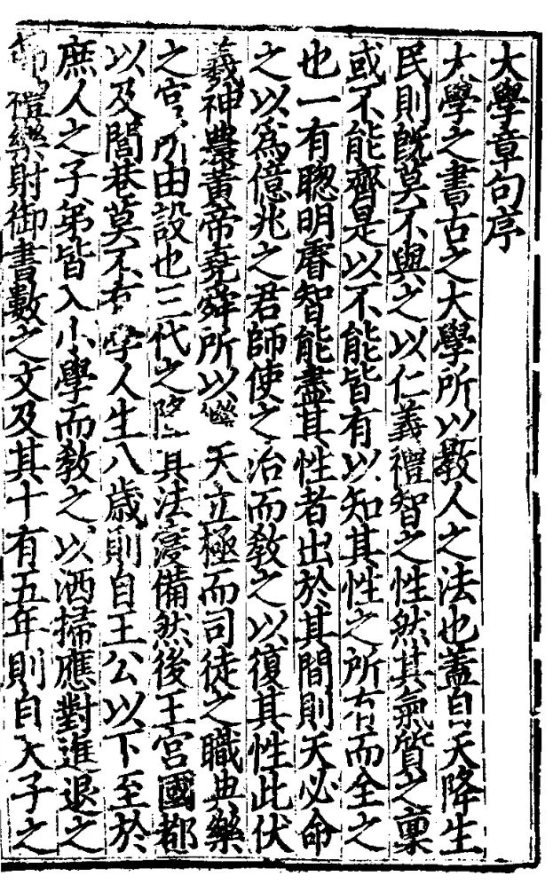 大學章句序
大學之書古之大學所以敎人之法也蓋自天降生
民則旣莫不與之以仁義禮智之性然其氣質之稟
或不能齊是以不能皆有以知其性之所有而全之
也一有聰明睿智能盡其性者出於其間則天必命
之以爲億兆之君師使之治而敎之以復其性此伏
羲神農黃帝堯舜所以繼天立極而司徒之職典樂
之官所由設也三代之隆其法寖備然後王宮國都
以及閭巷莫不有學人生八歲則自王公以下至於
庶人之子弟皆入小學而敎之以洒掃應對進退之
節禮樂射御書數之文及其十有五年則自天子之